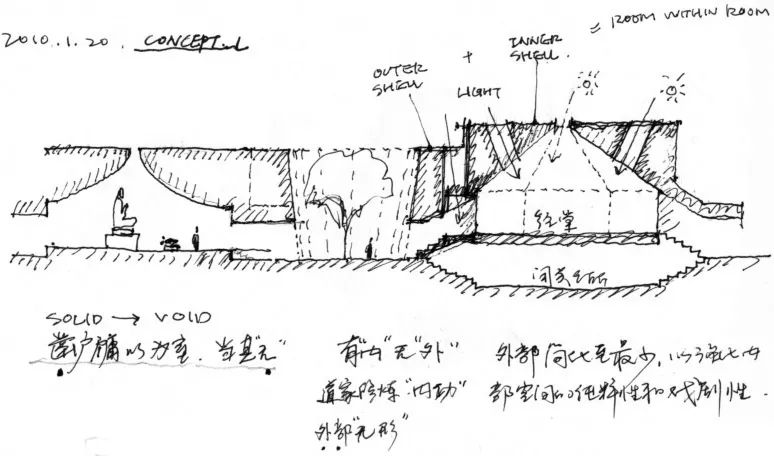 2010.1.20. CONCEPT.1
OUTER SHELL + LIGHT + INNER SHELL. = ROOM WITHIN ROOM
经堂
闭关之所
SOLID → VOID
凿户牖以为室.当其"无"
有"内"无"外"
道家修炼"内功"
外部"无形"
外部简化至最少,以强化内
部空间的纯粹性和戏剧性.